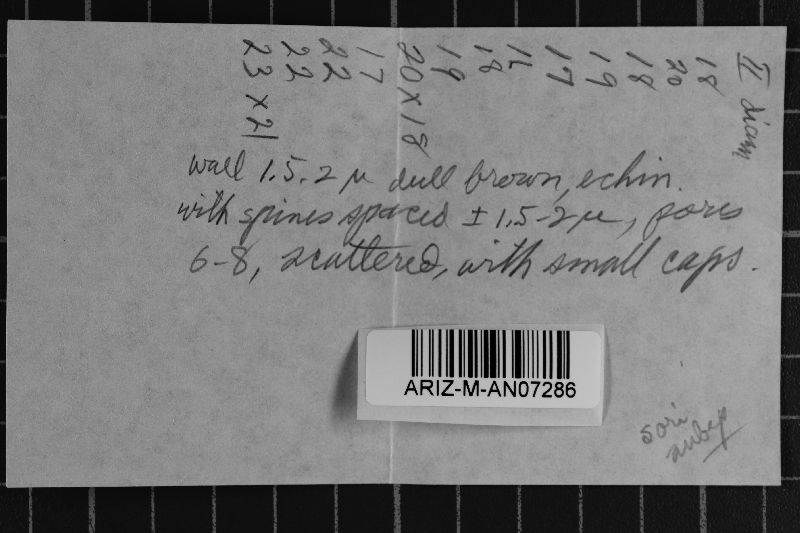 II diam
18
20
18
19
17
15
18
19
20 x 18
17
22
22
23 x 21
wall 1.5-2 µ dull brown, echin.
with spines spaced ± 1.5-2µ, pores
6-8, scattered, with small caps.
ARIZ-M-AN07286
sori
subep